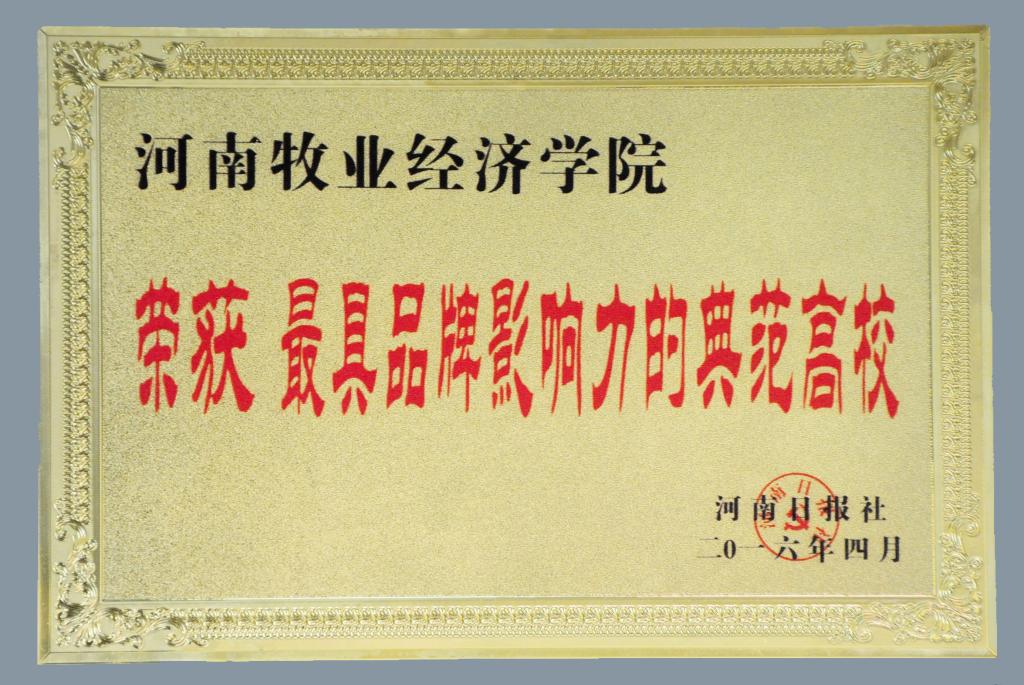 河南牧业经济学院
荣获 最具品牌影响力的典范高校
河南日报社
二0一六年四月